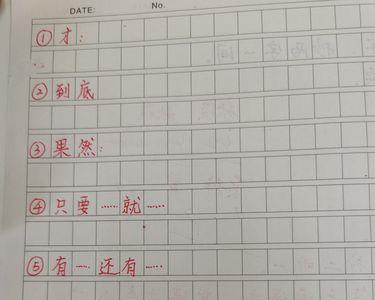 DATE: No.
①才：
②到底
③果然：
④只要……就……
⑤有…还有……